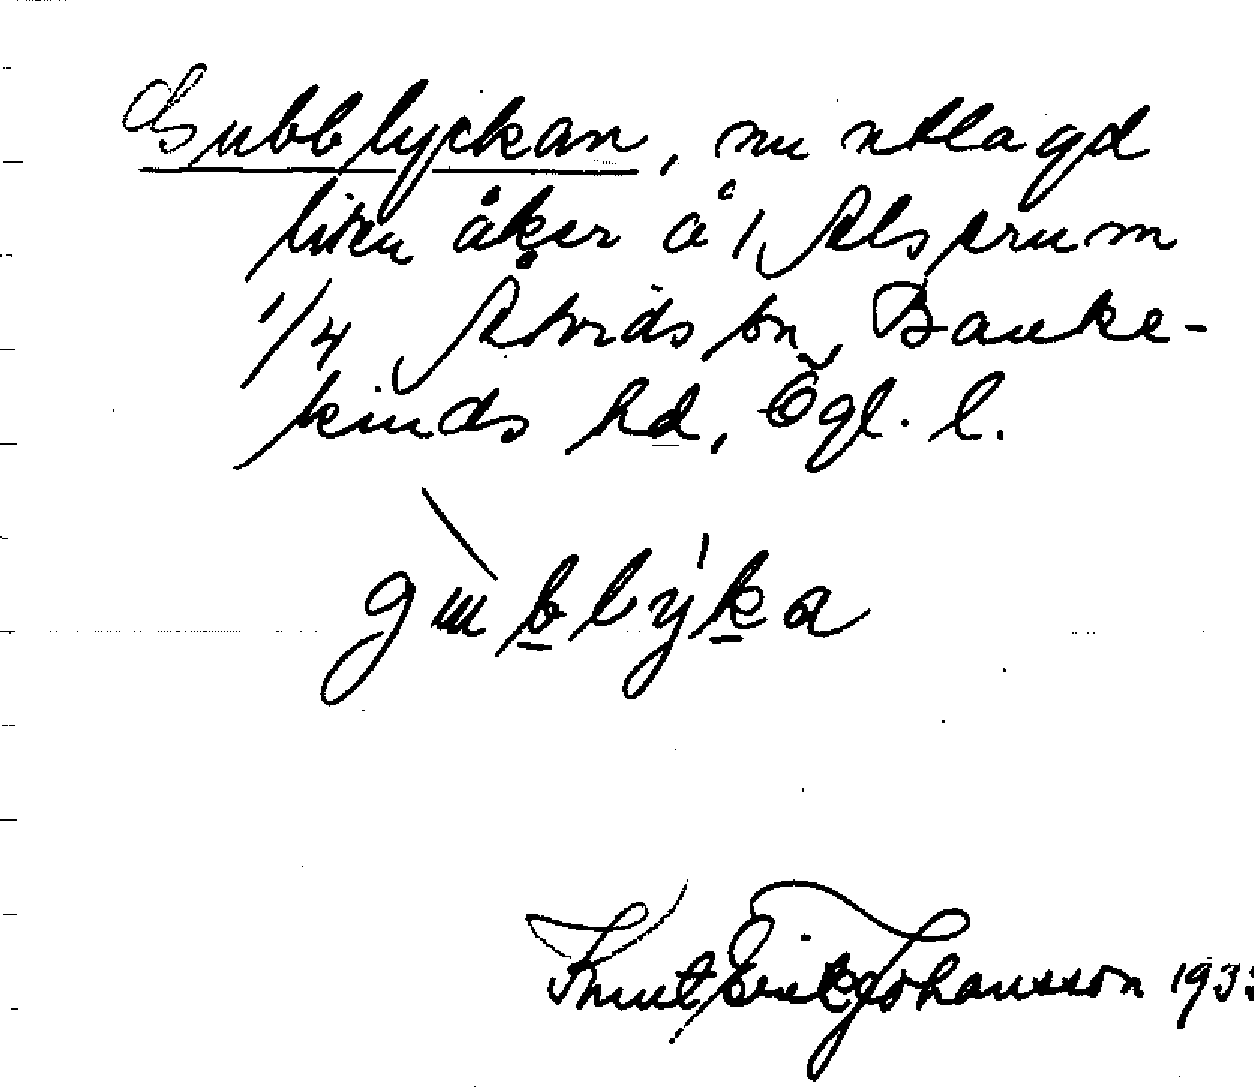 Gubblyckan, nu utlagd
liten åker å 1 Alsprum
1/4 Åtvids sn, Banke-
kinds hd, Ögl. l.
gɯbblýka
Knut Erik Johansson 1933